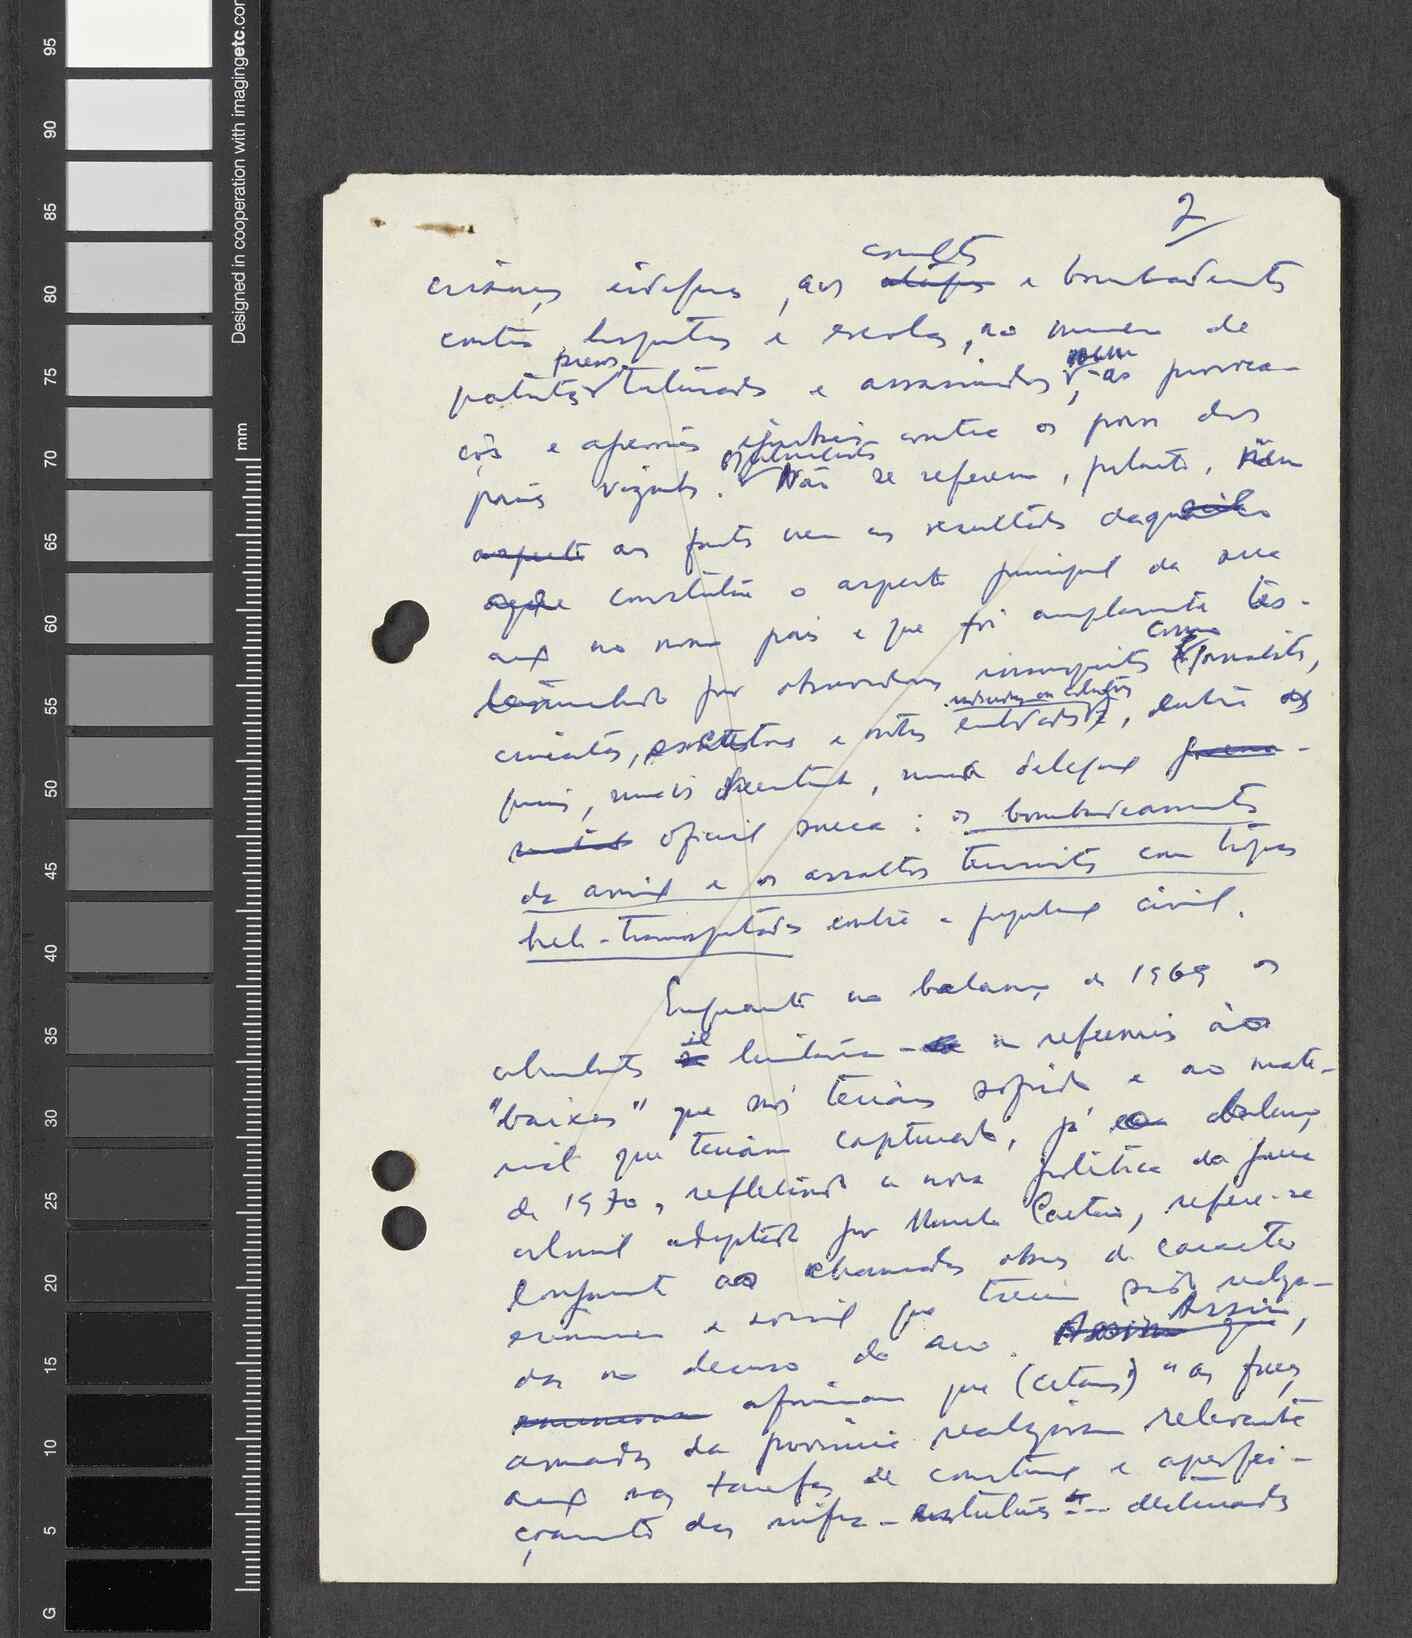 95
90
85
80
75
70
65
60
55
50
45
40
35
30
25
20
15
10
5
G
Designed in cooperation with imagingetc.com
mm
2
crianças indefesas, aos e bombardeamentos
contra hospitais e escolas, ao número de
presos
patriotas torturados e assassinados, nem às provoca-
ções e agressões contra os povos dos
países vizinhos. Não se referem, portanto, nem
aspecto aos factos nem aos resultados daquilo
que constitui o aspecto principal da sua
acção no nosso país e que foi amplamente tes-
como
temunhado por observadores insuspeitos jornalistas,
cineastas, escritores e outras entidades, entre as
quais, mais recentemente, numa delegação
oficial sueca: os bombardeamentos
da aviação e os assaltos terroristas com tropas
heli-transportadas contra a população civil.
Enquanto no balanço de 1969 os
colonialistas se limitavam a referências às
"baixas" que nós teríamos sofrido e ao mate-
rial que teriam capturado, já o balanço
de 1970, reflectindo a nova política da guerra
colonial adoptada por Marcelo Caetano, refere-se
longamente às chamadas obras de carácter
económico e social que teriam sido realiza-
das no decurso do ano. Assim,
afirmam que (citamos) "as forças
armadas da província realizaram relevante
acção nas tarefas de construção e aperfei-
çoamento das infra-estruturas destinadas